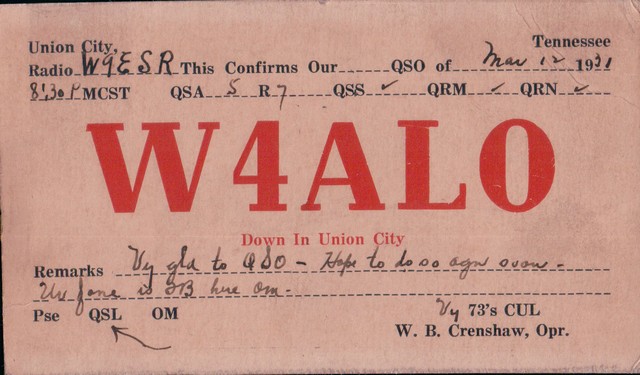 Union City, Tennessee
Radio W9ESR This Confirms Our QSO of Mar 12 1931
8:30 P MCST QSA 5 R 7 QSS ✓ QRM ✓ QRN ✓
W4ALO
Down In Union City
Remarks Vy gld to QSO - Hope to do so agn soon -
Ur fone is FB here om -
Pse QSL OM Vy 73's CUL
W. B. Crenshaw, Opr.